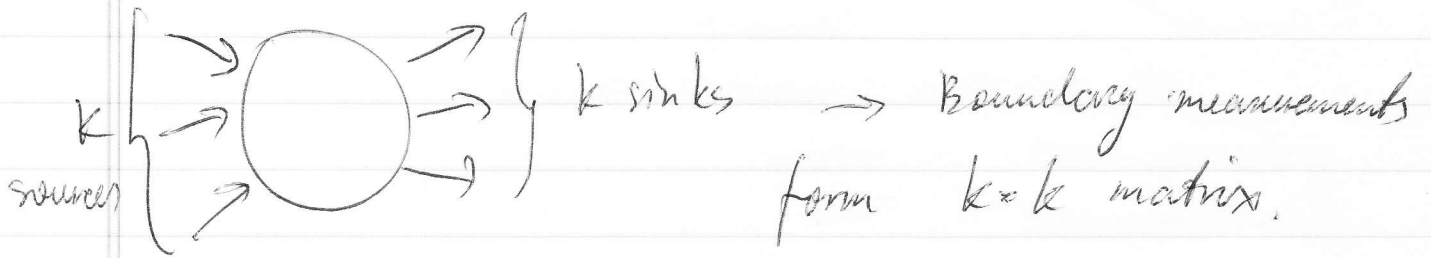 k sources
k sinks → Boundary measurements
form k×k matrix.